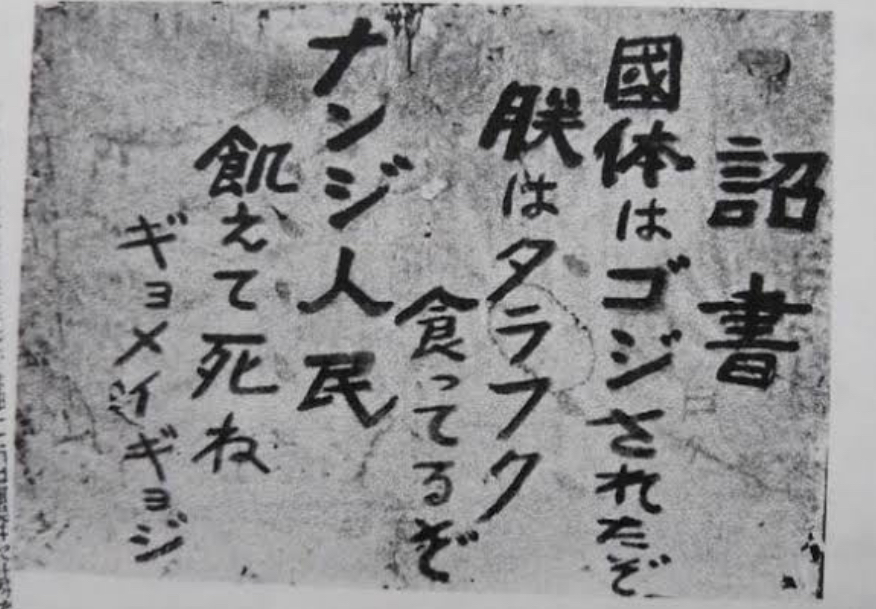 詔書
國体はゴジされたぞ
朕はタラフク
食ってるぞ
ナンジ人民
飢えて死ね
ギョメイギョジ